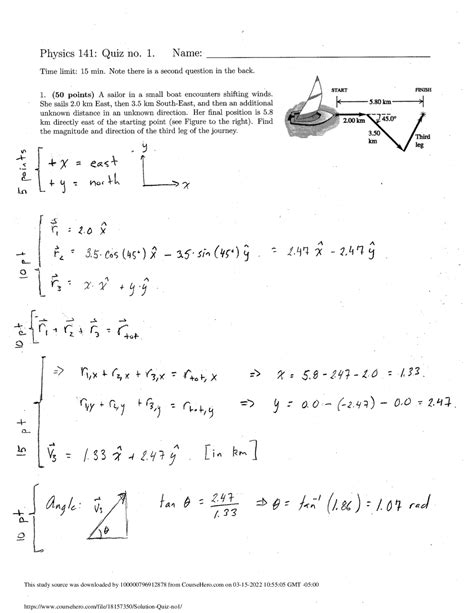 Physics 141: Quiz no. 1. Name:
Time limit: 15 min. Note there is a second question in the back.
1. (50 points) A sailor in a small boat encounters shifting winds.
She sails 2.0 km East, then 3.5 km South-East, and then an additional
unknown distance in an unknown direction. Her final position is 5.8
km directly east of the starting point (see Figure to the right). Find
the magnitude and direction of the third leg of the journey.
START FINISH
5.80 km
2.00 km 45.0°
3.50
km
Third
leg
5 points
+x = east
+y = north
y
x
10 pt
r⃗₁ = 2.0 x̂
r⃗₂ = 3.5·cos(45°) x̂ − 3.5·sin(45°) ŷ = 2.47 x̂ − 2.47 ŷ
r⃗₃ = x·x̂ + y·ŷ
10 pt
r⃗₁ + r⃗₂ + r⃗₃ = r⃗tot
15 pt
⇒ r₁,x + r₂,x + r₃,x = rtot,x ⇒ x = 5.8 − 247 − 2.0 = 1.33.
r₁,y + r₂,y + r₃,y = rtot,y ⇒ y = 0.0 − (−2.47) − 0.0 = 2.47.
v⃗₃ = 1.33 x̂ + 2.47 ŷ [in km]
10 pt
Angle: v⃗₃ θ tan θ = 2.47/1.33 ⇒ θ = tan⁻¹(1.86) = 1.07 rad
This study source was downloaded by 100000796912878 from CourseHero.com on 03-15-2022 10:55:05 GMT -05:00
https://www.coursehero.com/file/18157350/Solution-Quiz-no1/